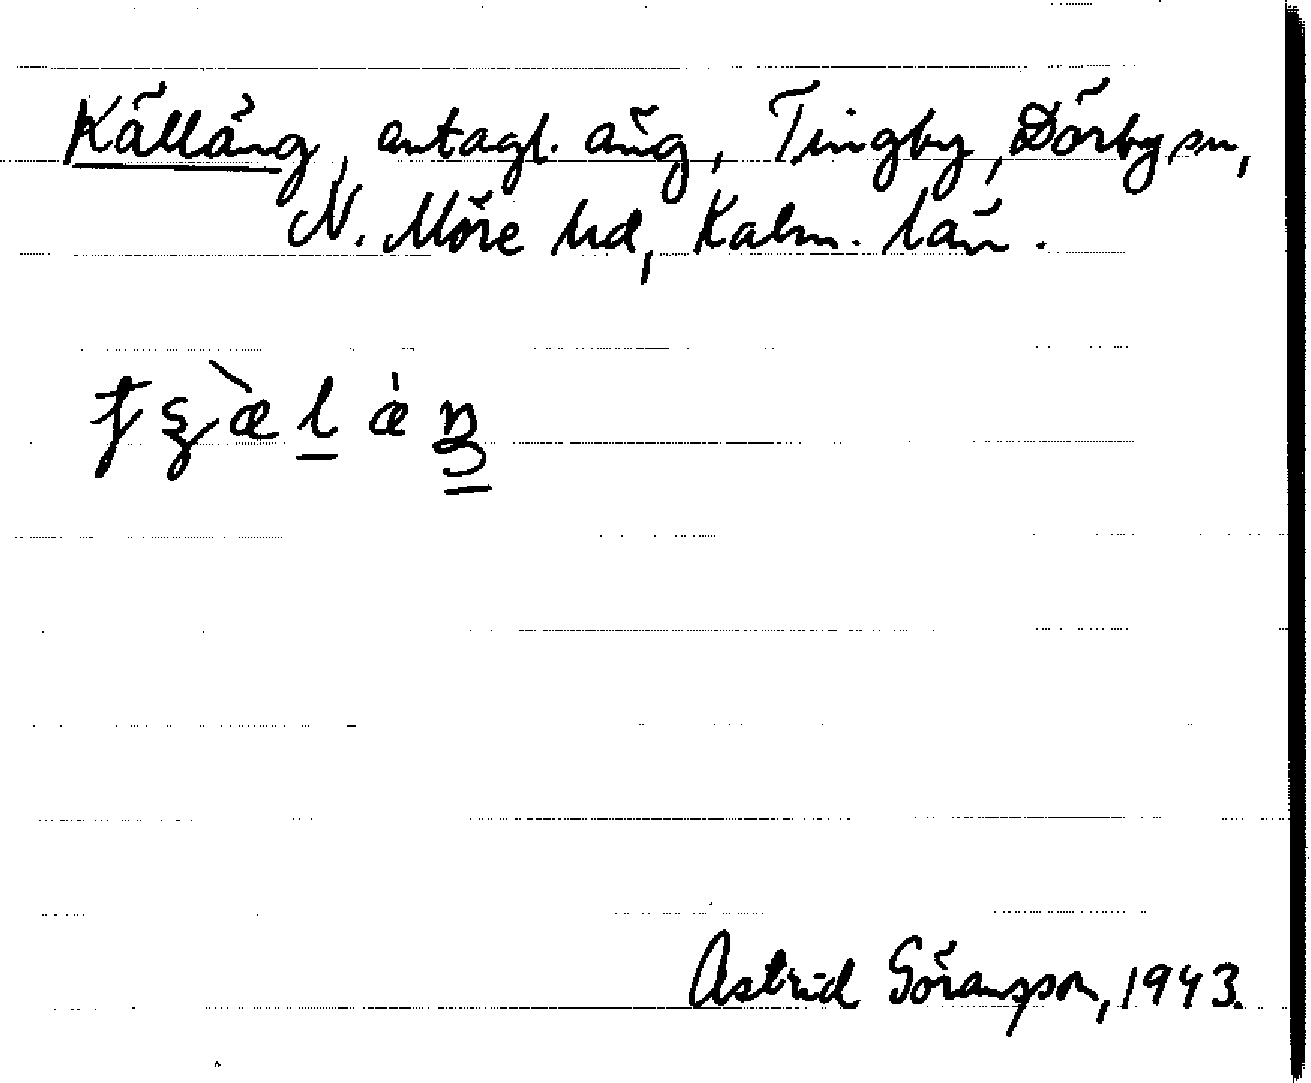 Källäng, antagl. äng, Tingby, Dörby sn,
N. Möre hd, Kalm. län.
Astrid Göransson, 1943.